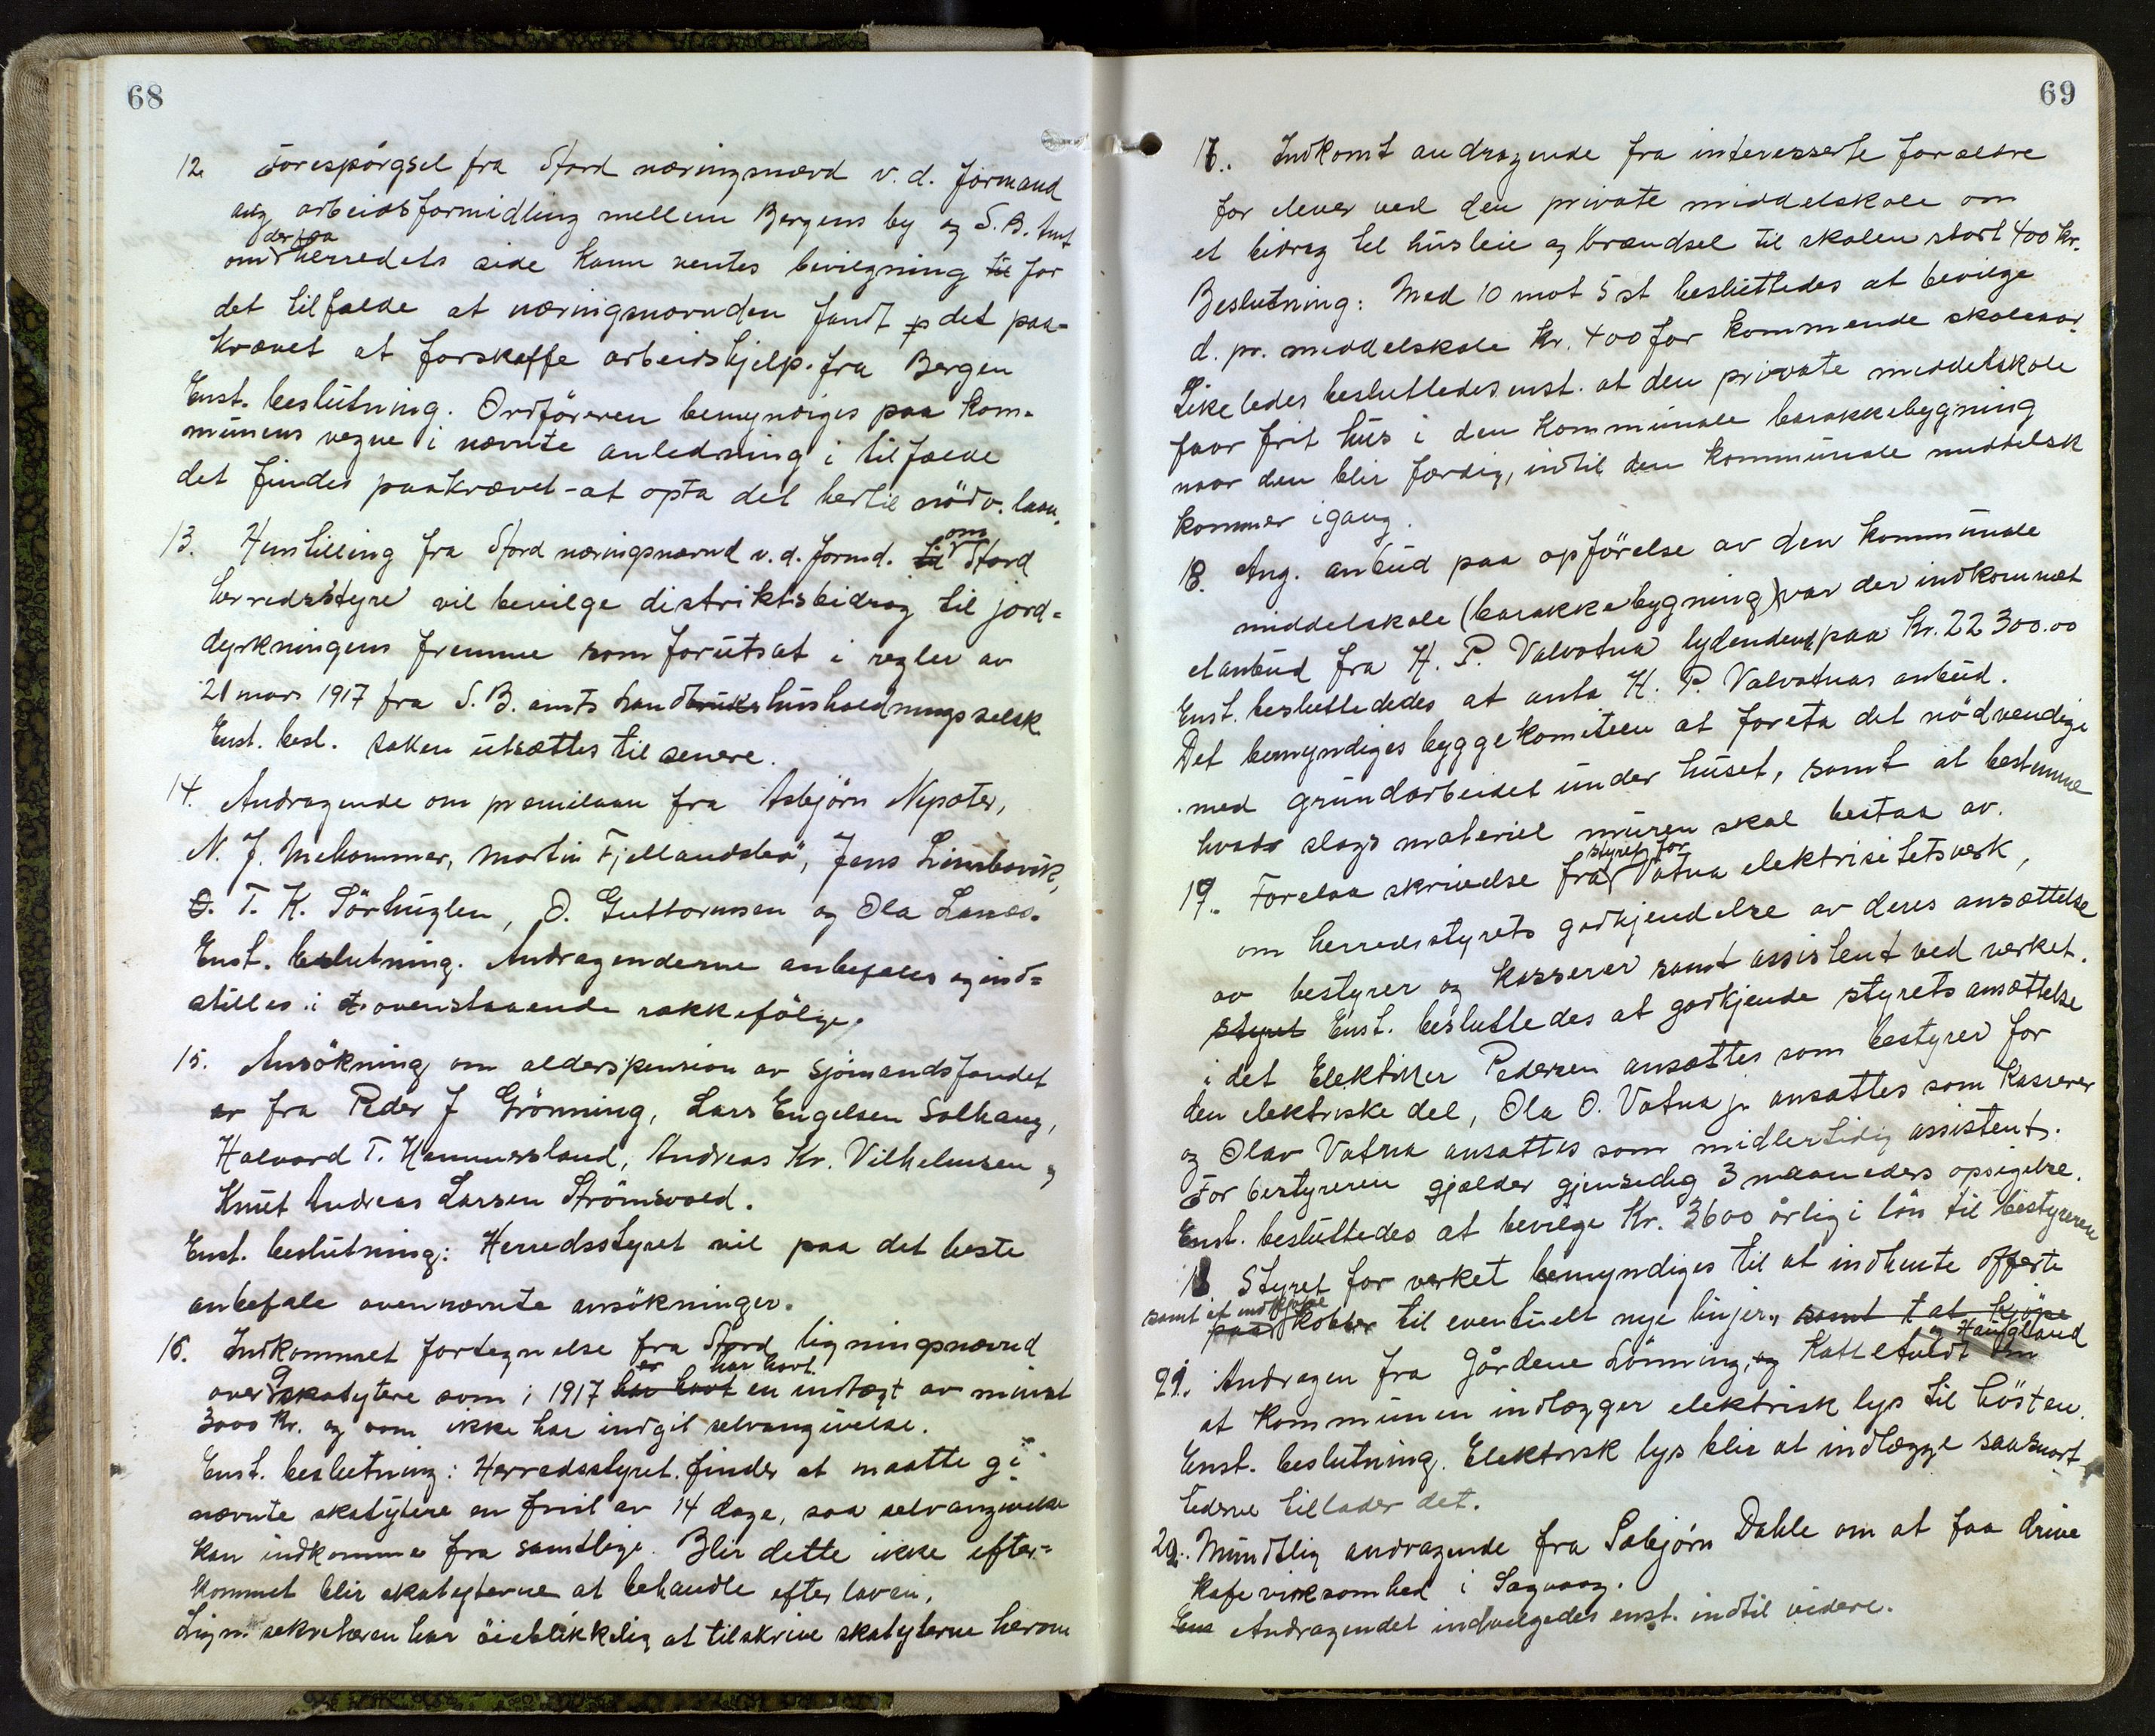 68
12. Forespörgsel fra Stord næringsnævnd v.d. formand
ang arbeidsformidling mellem Bergens by og S.B. Amt
om der paa herredets side kann ventes bevilgning til for
det tilfælde at næringsnævnden fandt p det paa-
krævet at forskaffe arbeidshjelp fra Bergen
Enst. beslutning. Ordföreren bemyndiges paa kom-
munens vegne i nævnte anledning i tilfælde
det findes paakrævet - at opta det hertil nödv. laan.
13. Henstilling fra Stord næringsnævnd v.d. formd. til om Stord
herredsstyre vil bevilge distriktsbidrag til jord-
dyrkningens fremme som forutsat i regler av
21 mars 1917 fra S.B. amts landbruks husholdningsselsk
Enst. besl. Saken utsættes til senere.
14. Andragende om premilaan fra Asbjörn Nipater,
N. J. Mehammer, Martin Fjellandsbö, Jens Limbuvik,
O. T. K. Sörhuglen, O. Guttormsen og Ola Lanes.
Enst. beslutning. Andragenderne anbefales og ind-
stilles i ovenstaaende rækkefölge.
15. Ansökning om alderspension av Sjömandsfondet
av fra Peder J Grönning, Lars Engelsen Solhaug,
Halvard T. Hammersland, Andreas Kr. Vilhelmsen og
Knut Andreas Larsen Strömsvold.
Enst. beslutning: Herredsstyret vil paa det beste
anbefale ovennævnte ansökninger.
16. Indkommet fortegnelse fra Stord ligningsnævnd
over 9 skatytere som i 1917 har havt er har havt en indtægt av minst
3000 Kr. og som ikke har indgit selvangivelse.
Enst. beslutning: Herredsstyret finder at maatte gi
nævnte skatytere en frist av 14 dage, saa selvangivelse
kan indkomme fra samtlige. Blir dette ikke efter-
kommet blir skatyterne at behandle efter loven.
Lign. sekretæren har öieblikkelig at tilskrive skatyterne herom
69
17. Indkomt andragende fra interesserte forældre
for elever ved den private middelskole om
et bidrag til husleie og brændsel til skolen stort 400 kr.
Beslutning: Med 10 mot 5 st besluttedes at bevilge
d. pr. middelskole Kr. 400 for kommende skoleaar.
Likeledes besluttedes enst. at den private middelskole
faar frit hus i den kommunale barakkebygning
naar den blir færdig, indtil den kommunale middelsk
kommer igang.
18. Ang. anbud paa opförelse av den kommunale
middelskole (barakkebygning) var der indkommet
et anbud fra H. P. Valvatna lydende paa Kr. 22 300.00
Enst. besluttededes at anta H. P. Valvatnas anbud.
Det bemyndiges byggekomiteen at foreta det nödvendige
med grundarbeidet under huset, samt at bestemme
hvads slags materiel muren skal bestaa av.
19. Forelaa skrivelse fra styret for Vatna elektrisitetsverk,
om herredsstyrets godkjendelse av deres ansættelse
av bestyrer og kasserer samt assistent ved verket.
styret Enst. besluttedes at godkjende styrets ansættelse
i det Elektriker Pedersen ansættes som bestyrer for
den elektriske del, Ola O. Vatna jr ansættes som Kasserer
og Olav Vatna ansættes som midlertidig assistent.
For bestyreren gjælder gjensidig 3 maaneders opsigelse.
Enst. besluttedes at bevilge Kr. 3600 årlig i lön til bestyreren
Styret for verket bemyndiges til at indhente offerte
samt at indkjöpe paa kobber til eventuelt nye linjer, samt t at kjöpe
21. Andragen fra Gårdene Lönning, og Kattatveit og Haugland om
at kommunen indlægger elektrisk lys til hösten.
Enst. beslutning. Elektrisk lys blir at indlægge saasnart
tiderne tillader det.
22. Mundtlig andragende fra Sæbjörn Dahle om at faa drive
Kafevirksomhed i Sagvaag.
Ens Andragendet indvilgedes enst. indtil videre.